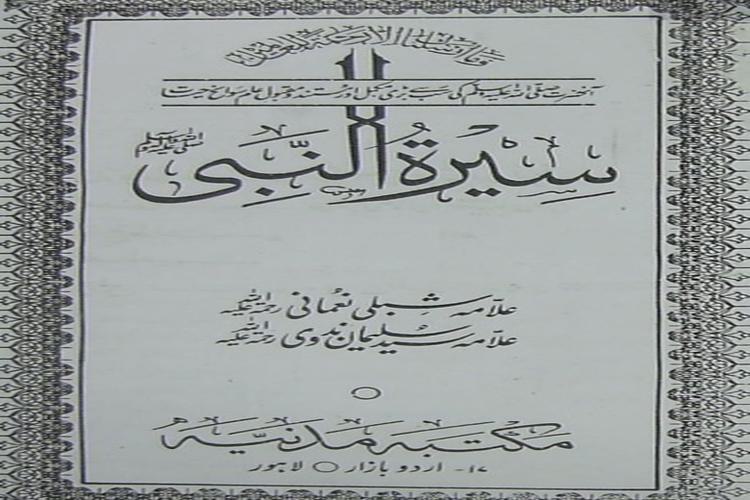 وما ارسلناک الا رحمة للعالمین
آنحضرت صلی اللہ علیہ وسلم کی سب سے بڑی مکمل اور مستند و مقبول عام سوانح حیات
سِیرۃُ النَّبِی صلی اللہ علیہ وسلم
علّامہ شبلی نعمانی رحمۃ اللہ علیہ
علّامہ سید سلیمان ندوی رحمۃ اللہ علیہ
مکتبہ مدنیّہ
۱۷- اردو بازار ○ لاہور